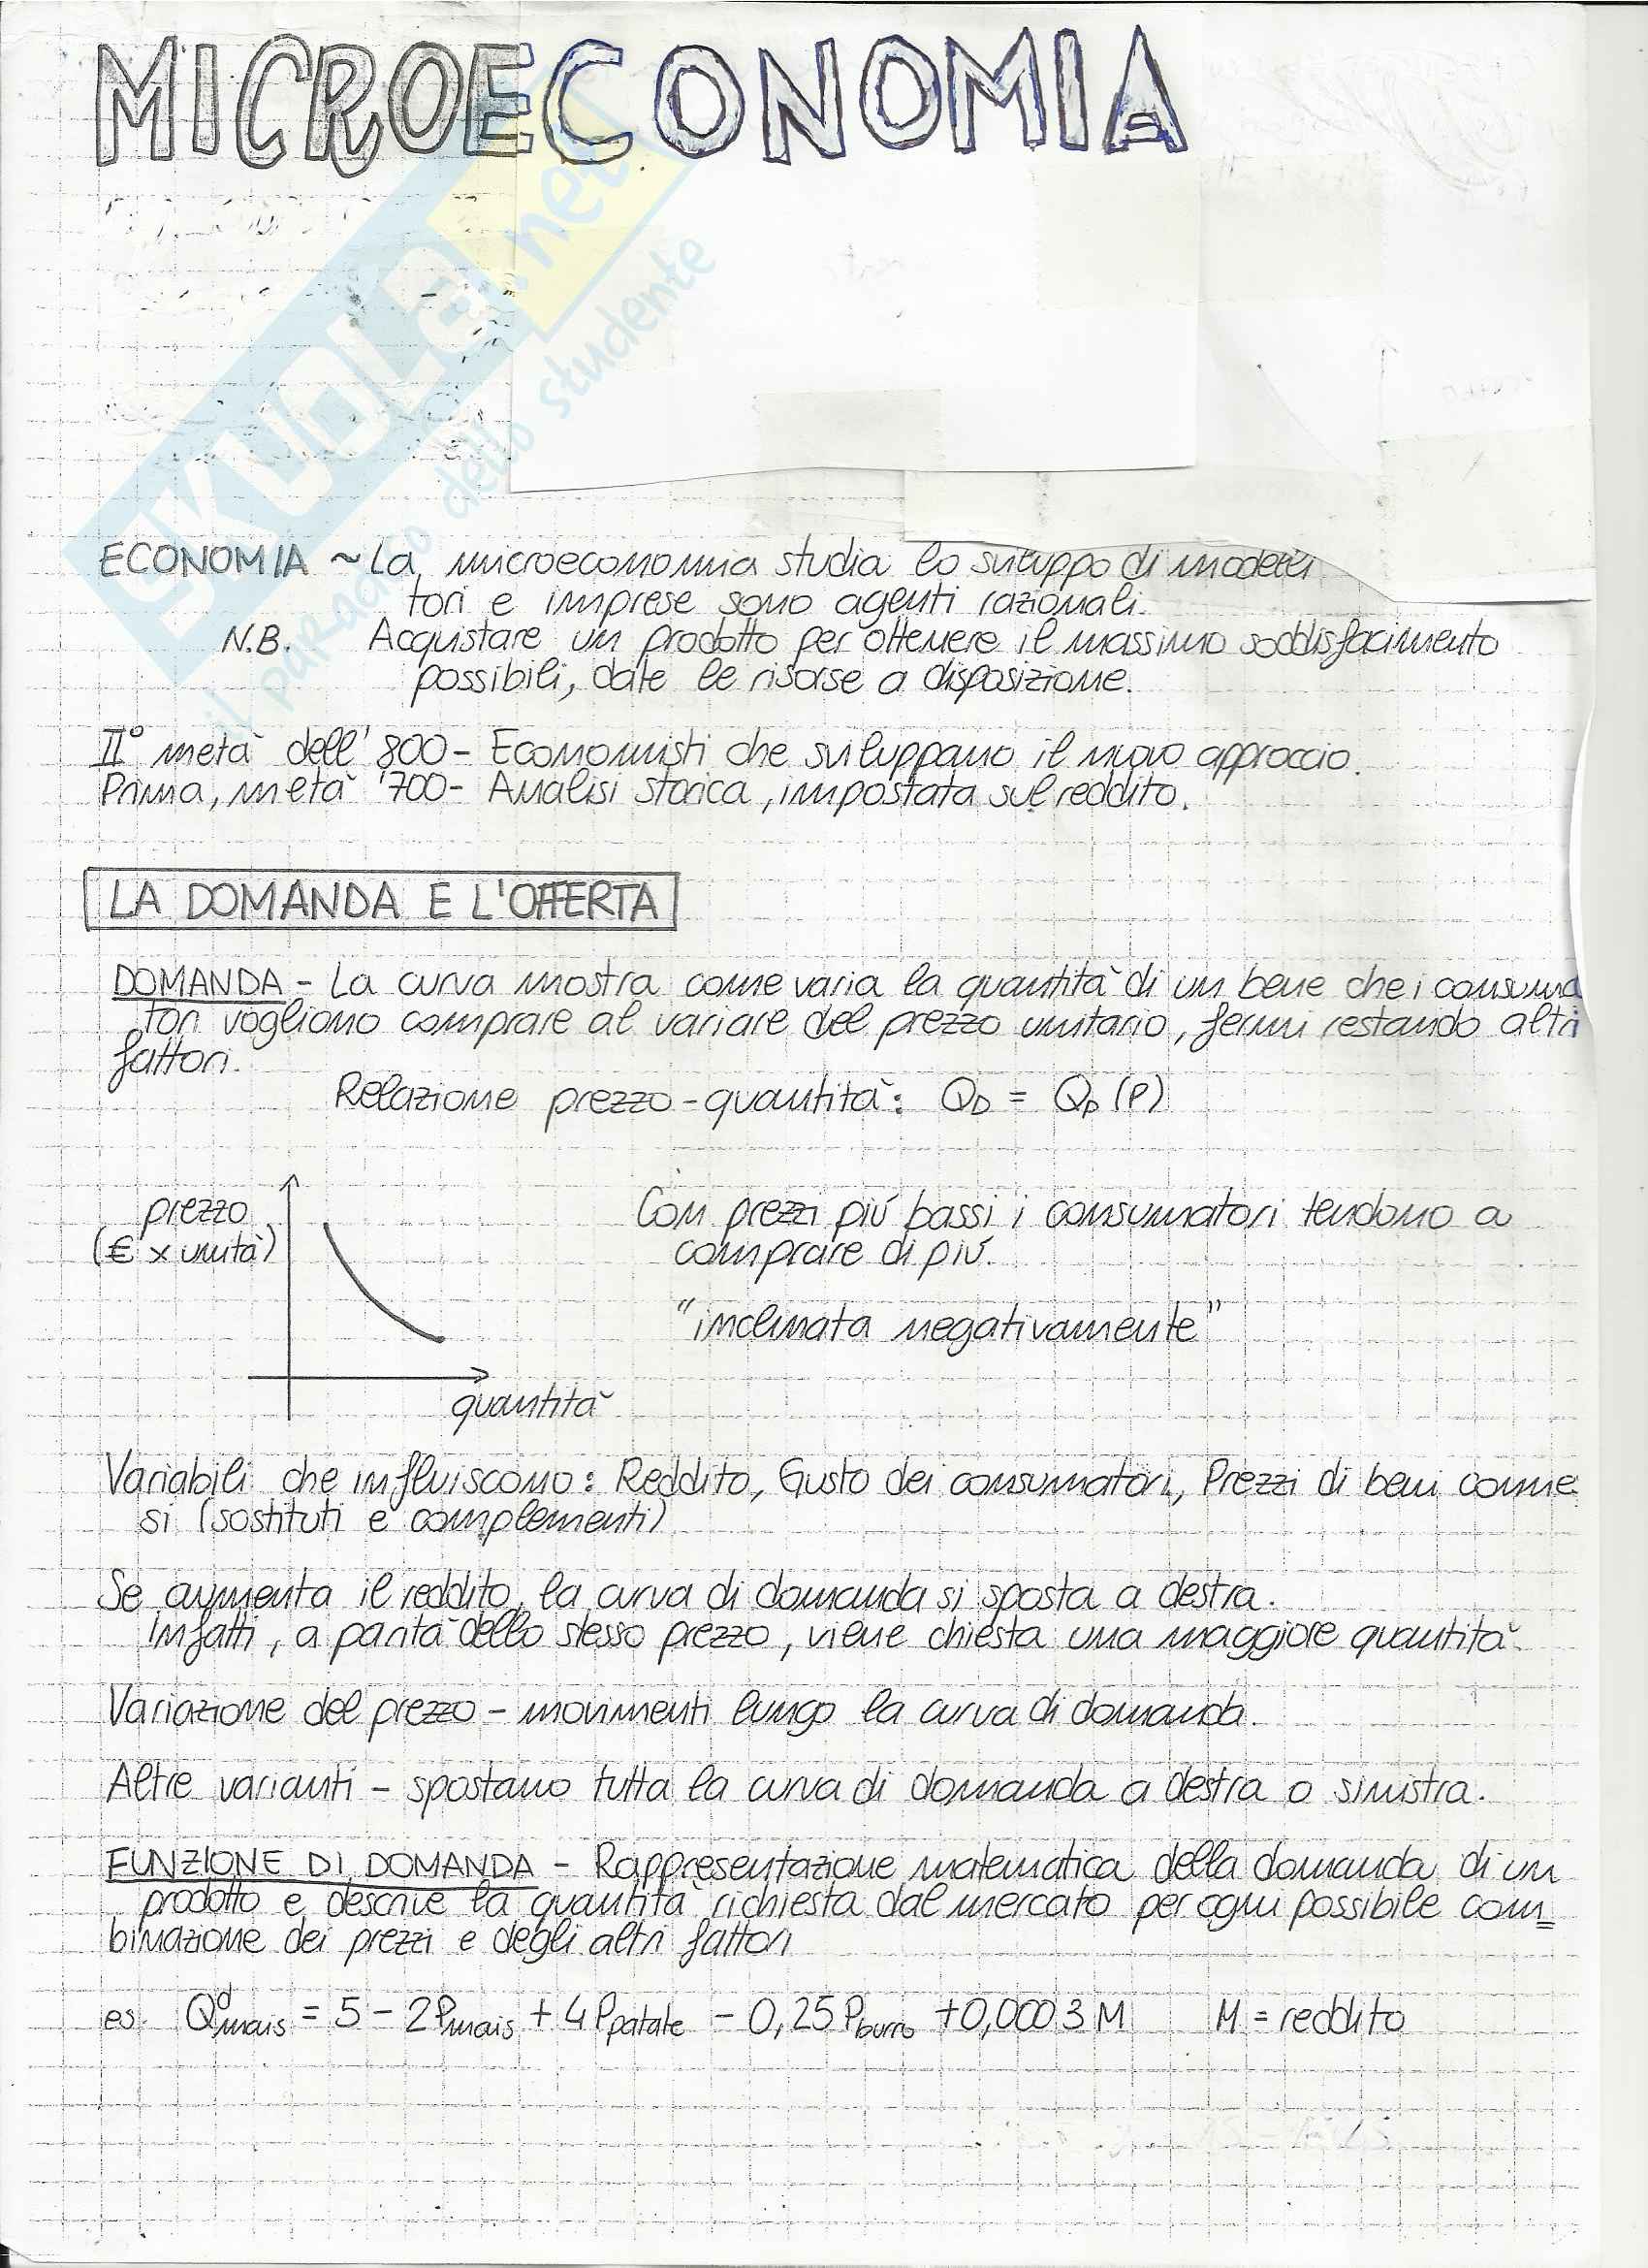 MICROECONOMIA
SKUOLA.net
il paradiso dello studente
ECONOMIA ~ La microeconomia studia lo sviluppo di modelli
tori e imprese sono agenti razionali.
N.B. Acquistare un prodotto per ottenere il massimo soddisfacimento
possibili, date le risorse a disposizione.
II° metà dell' 800 - Economisti che sviluppano il nuovo approccio.
Prima, metà '700 - Analisi storica, impostata sul reddito.
LA DOMANDA E L'OFFERTA
DOMANDA - La curva mostra come varia la quantità di un bene che i consuma
tori vogliono comprare al variare del prezzo unitario, fermi restando altri
fattori.
Relazione prezzo-quantità: QD = QD (P)
prezzo
(€ x unità)
Con prezzi più bassi i consumatori tendono a
comprare di più.
"inclinata negativamente"
quantità
Variabili che influiscono: Reddito, Gusto dei consumatori, Prezzi di beni conne
si (sostituti e complementi)
Se aumenta il reddito, la curva di domanda si sposta a destra.
Infatti, a parità dello stesso prezzo, viene chiesta una maggiore quantità.
Variazione del prezzo - movimenti lungo la curva di domanda.
Altre varianti - spostano tutta la curva di domanda a destra o sinistra.
FUNZIONE DI DOMANDA - Rappresentazione matematica della domanda di un
prodotto e descrive la quantità richiesta dal mercato per ogni possibile com=
binazione dei prezzi e degli altri fattori
es. Qᵈmais = 5 - 2Pmais + 4Ppatate - 0,25Pburro + 0,0003 M M = reddito